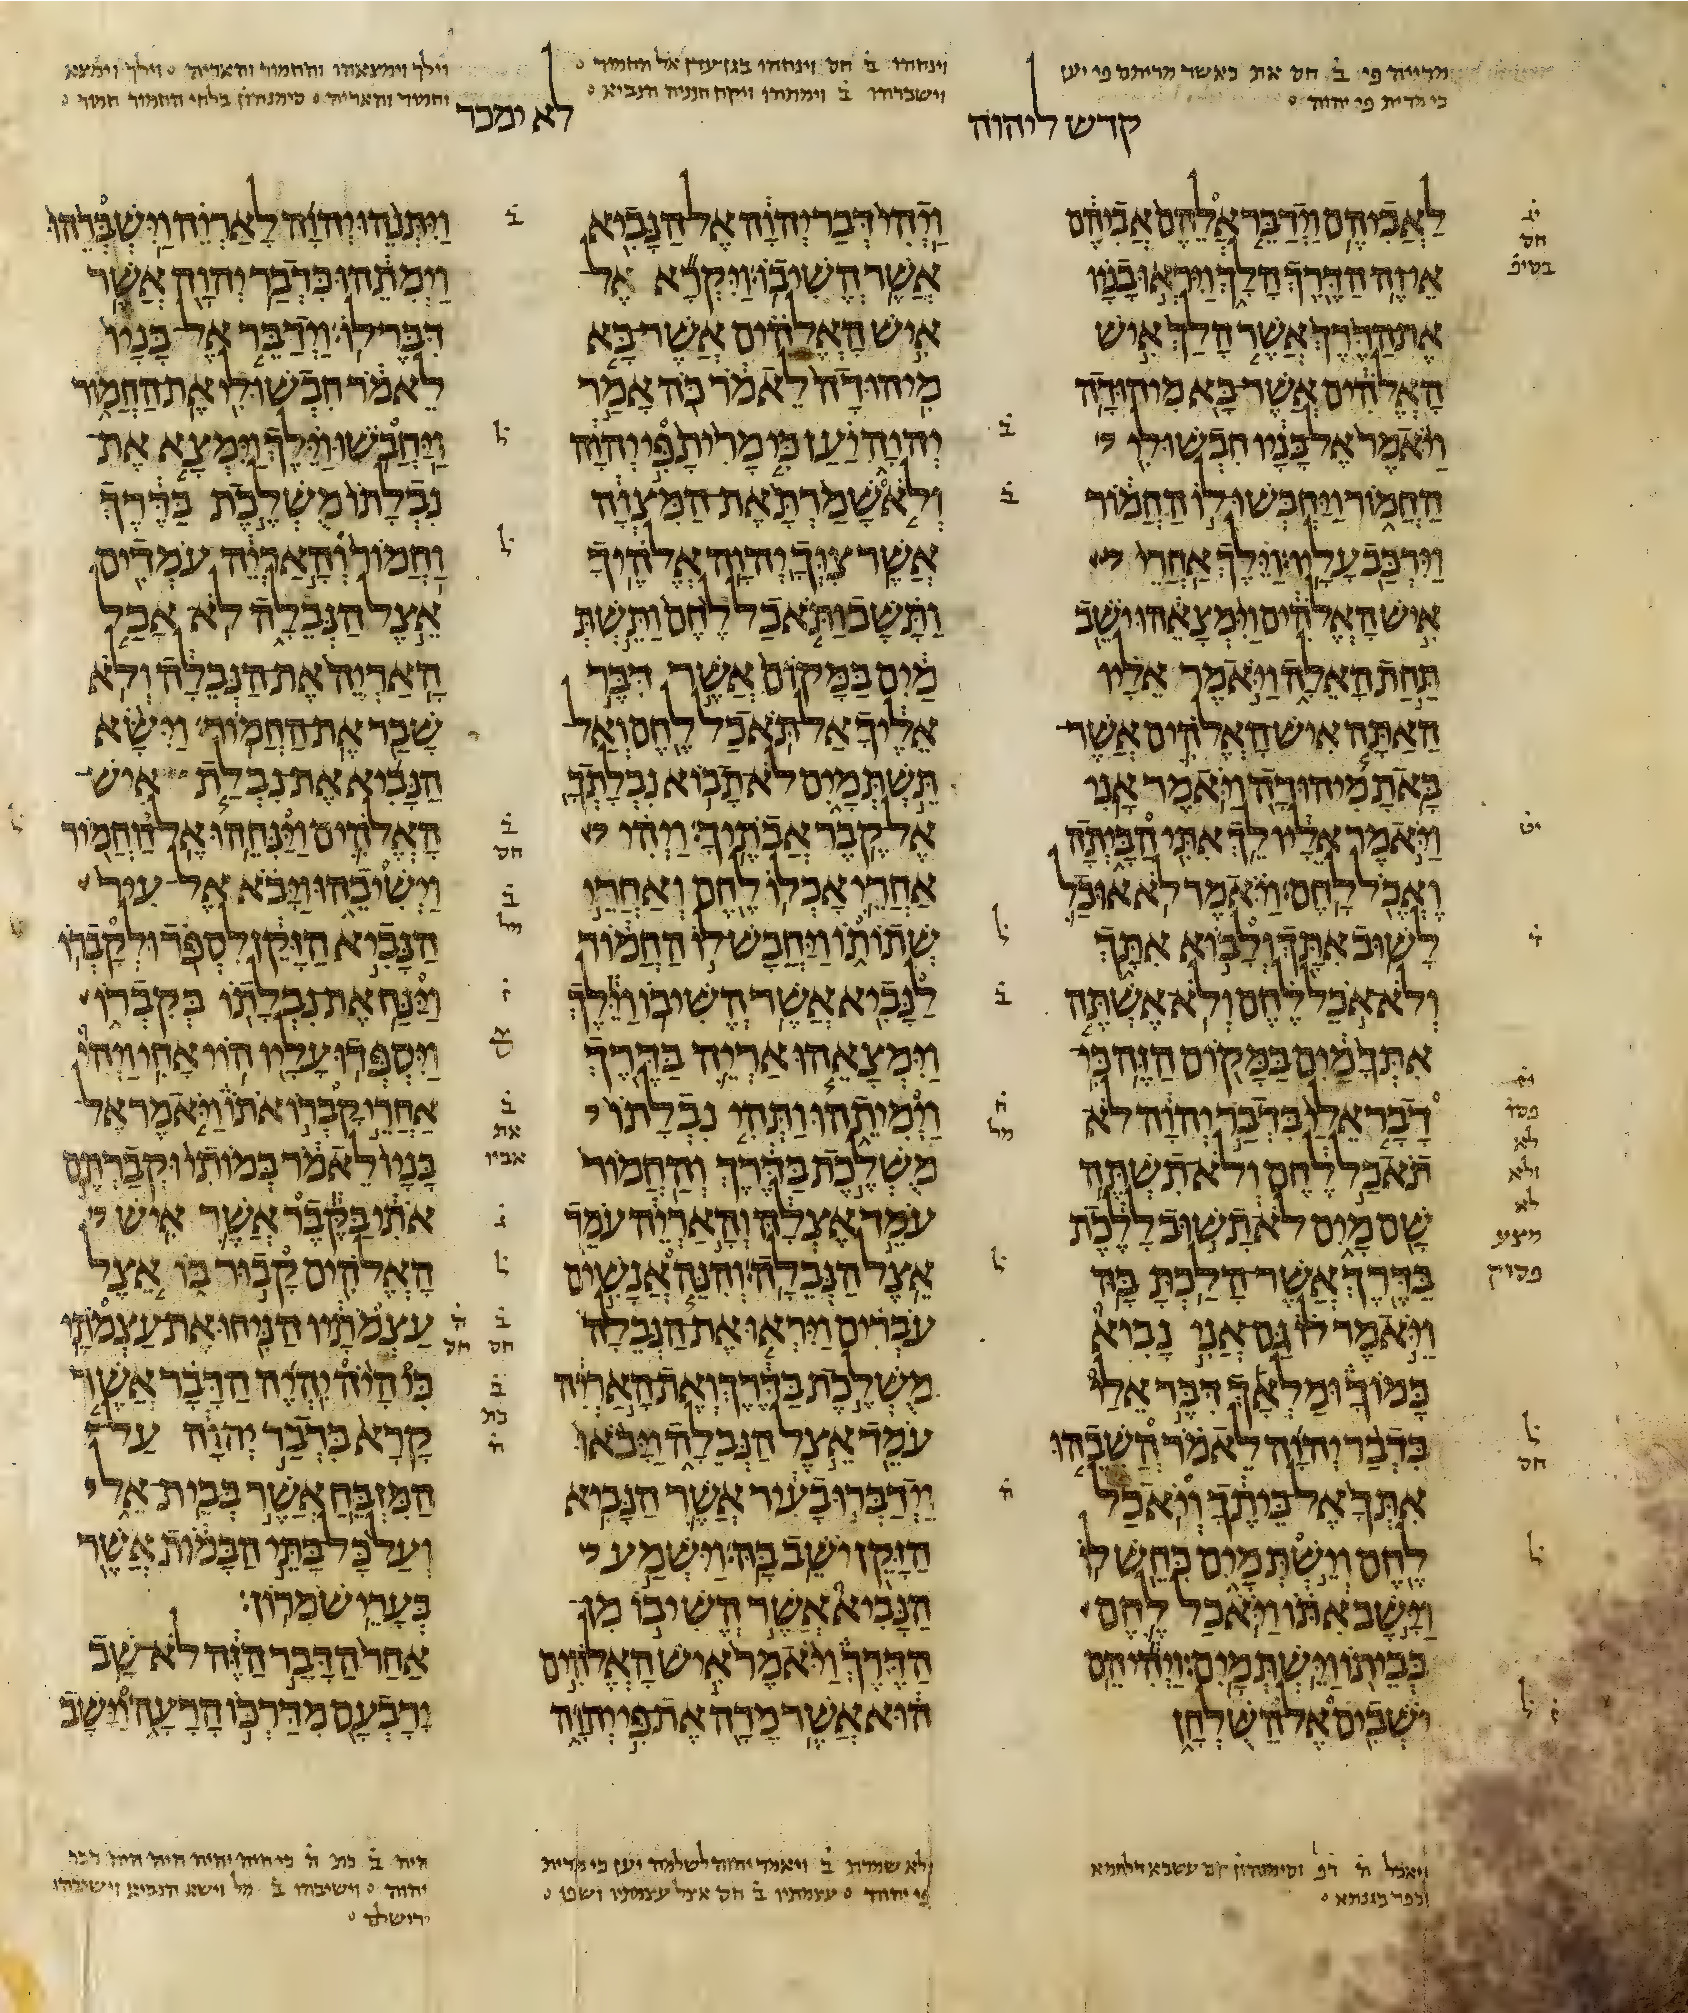 קדש ליהוה
לא ימכר
כי מרית פי יהוה
וינחהו ב חס וינחהו בגן עדן אל החמור
וישברהו ב וימתהו ויקח חנניה הנביא
וילך וימצאהו והחמור והאריה וילך וימצא
וחמור והאריה סימנהון בלחי החמור חמור
לאביהם וידבר אלהם אביהם
אי זה הדרך הלך ויראו בניו
את הדרך אשר הלך איש
האלהים אשר בא מיהודה
ויאמר אל בניו חבשו לי
החמור ויחבשו לו החמור
וירכב עליו׃ וילך אחרי
איש האלהים וימצאהו ישב
תחת האלה ויאמר אליו
האתה איש האלהים אשר־
באת מיהודה ויאמר אני׃
ויאמר אליו לך אתי הביתה
ואכל לחם׃ ויאמר לא אוכל
לשוב אתך ולבוא אתך
ולא־אכל לחם ולא־אשתה
אתך מים במקום הזה׃ כי־
דבר אלי בדבר יהוה לא־
תאכל לחם ולא־תשתה
שם מים לא־תשוב ללכת
בדרך אשר־הלכת בה׃
ויאמר לו גם־אני נביא
כמוך ומלאך דבר אלי
בדבר יהוה לאמר השבהו
אתך אל־ביתך ויאכל
לחם וישת מים כחש לו׃
וישב אתו ויאכל לחם
בביתו וישת מים׃ ויהי הם
ישבים אל־השלחן
ויהי דבר־יהוה אל־הנביא
אשר השיבו׃ ויקרא אל־
איש האלהים אשר־בא
מיהודה לאמר כה אמר
יהוה יען כי מרית פי יהוה
ולא שמרת את־המצוה
אשר צוך יהוה אלהיך׃
ותשב ותאכל לחם ותשת
מים במקום אשר דבר
אליך אל־תאכל לחם ואל־
תשת מים לא־תבוא נבלתך
אל־קבר אבתיך׃ ויהי
אחרי אכלו לחם ואחרי
שתותו ויחבש־לו החמור
לנביא אשר השיבו׃ וילך
וימצאהו אריה בדרך
וימיתהו ותהי נבלתו
משלכת בדרך והחמור
עמד אצלה והאריה עמד
אצל הנבלה׃ והנה אנשים
עברים ויראו את־הנבלה
משלכת בדרך ואת־האריה
עמד אצל הנבלה ויבאו
וידברו בעיר אשר הנביא
הזקן ישב בה׃ וישמע
הנביא אשר השיבו מן־
הדרך ויאמר איש האלהים
הוא אשר מרה את־פי יהוה
ויתנהו יהוה לאריה וישברהו
וימתהו כדבר יהוה אשר
דבר־לו׃ וידבר אל־בניו
לאמר חבשו־לי את־החמור
ויחבשו׃ וילך וימצא את־
נבלתו משלכת בדרך
וחמור והאריה עמדים
אצל הנבלה לא־אכל
האריה את־הנבלה ולא
שבר את־החמור׃ וישא
הנביא את־נבלת איש־
האלהים וינחהו אל־החמור
וישיבהו ויבא אל־עיר
הנביא הזקן לספד ולקברו׃
וינח את־נבלתו בקברו
ויספדו עליו הוי אחי׃ ויהי
אחרי קברו אתו ויאמר אל־
בניו לאמר במותי וקברתם
אתי בקבר אשר איש
האלהים קבור בו אצל
עצמתיו הניחו את־עצמתי׃
כי היה יהיה הדבר אשר
קרא בדבר יהוה על־
המזבח אשר בבית־אל
ועל כל־בתי הבמות אשר
בערי שמרון׃
אחר הדבר הזה לא־שב
ירבעם מדרכו הרעה וישב
ולא שמרת ב ויאמר יהוה לשלמה יען כי מרית
פי יהוה עצמתיו ב חס אצל עצמתיו ושבו
היה ב כת ה כי היה יהיה היה היה דבר
יהוה וישיבהו ב מל וישא הנביא וישיבהו
ירושלם